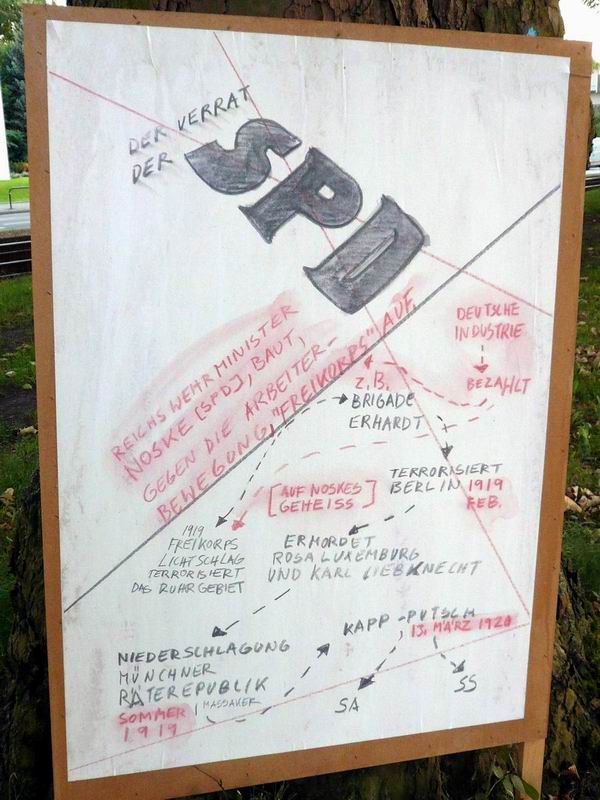 DER VERRAT
DER
SPD
REICHSWEHRMINISTER
NOSKE [SPD], BAUT,
GEGEN DIE ARBEITER-
BEWEGUNG, "FREIKORPS" AUF
DEUTSCHE
INDUSTRIE
BEZAHLT
Z.B.
BRIGADE
ERHARDT
TERRORISIERT
BERLIN 1919
FEB.
[AUF NOSKES
GEHEISS]
1919
FREIKORPS
LICHTSCHLAG
TERRORISIERT
DAS RUHRGEBIET
ERMORDET
ROSA LUXEMBURG
UND KARL LIEBKNECHT
NIEDERSCHLAGUNG
MÜNCHNER
RÄTEREPUBLIK
MASSAKER
SOMMER
1919
KAPP-PUTSCH
13. MÄRZ 1920
SA
SS